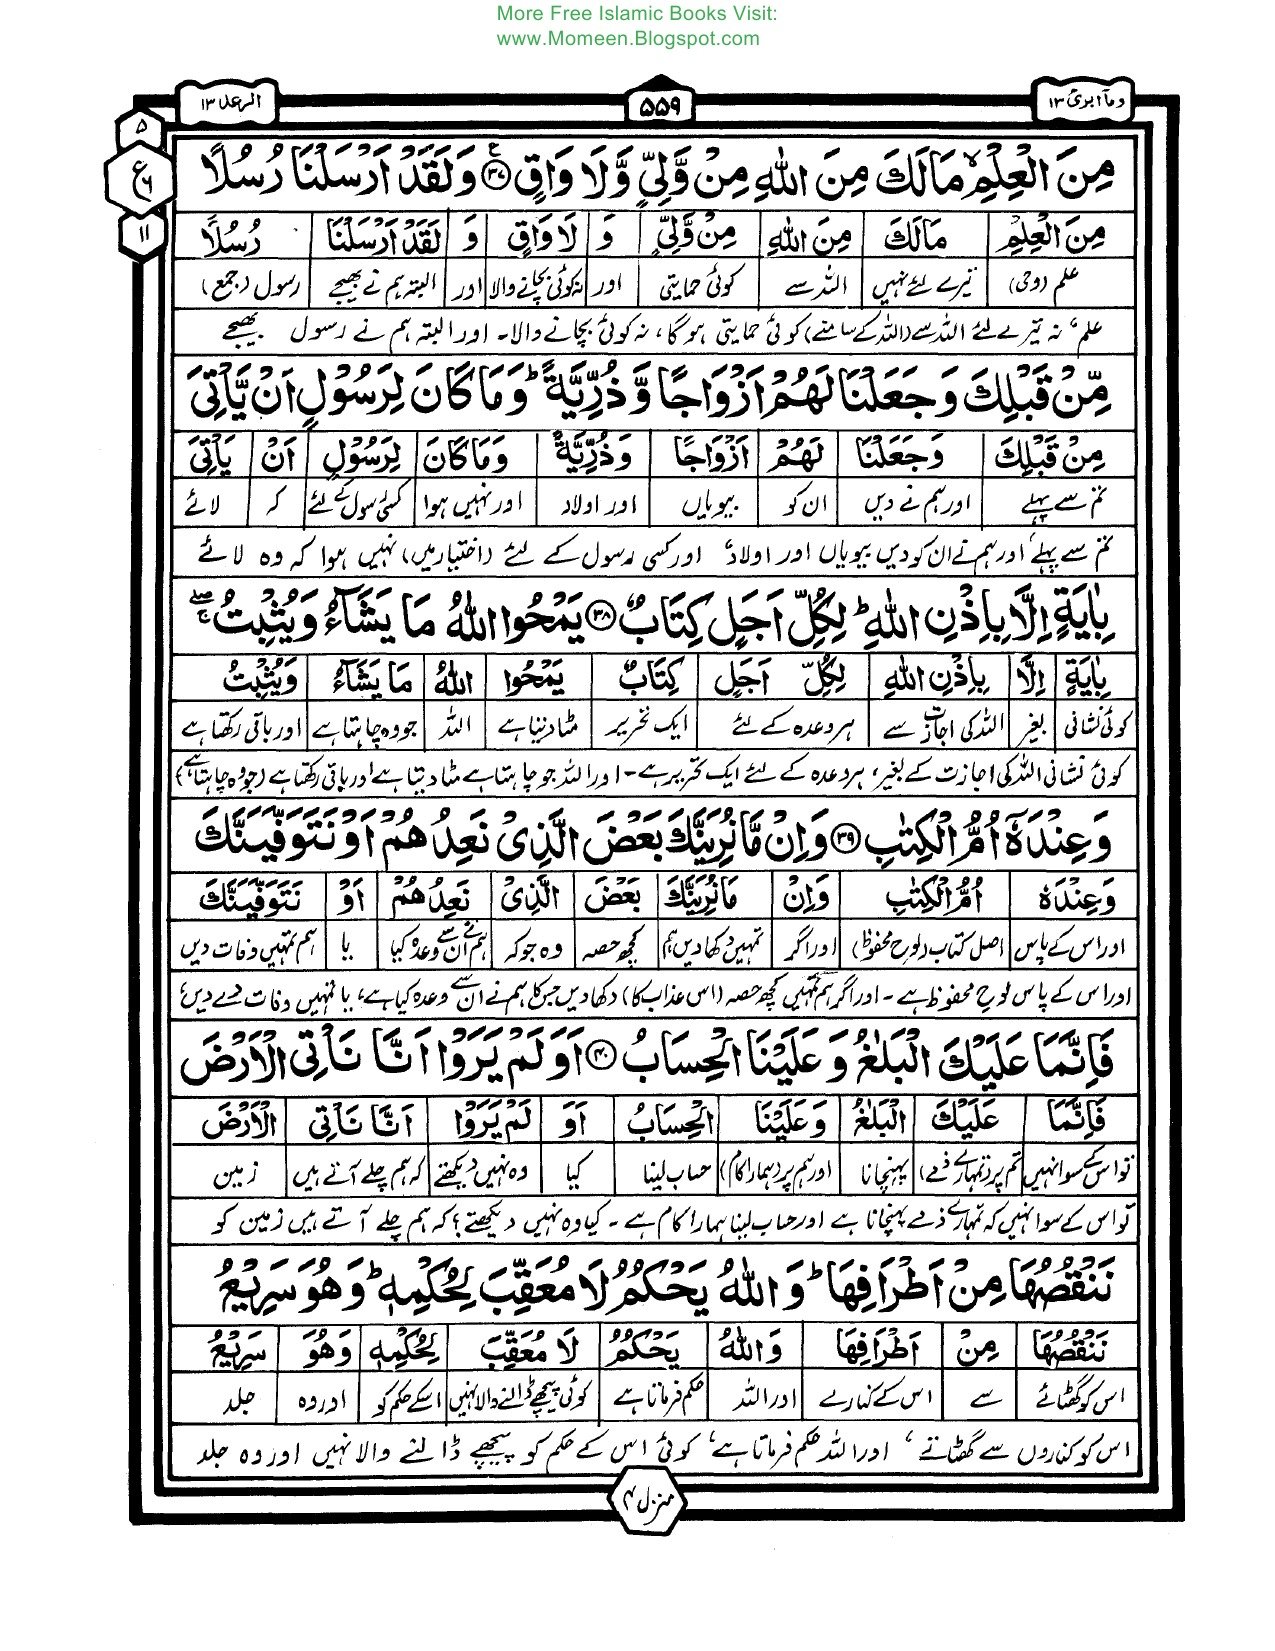 More Free Islamic Books Visit:
www.Momeen.Blogspot.com
وما ابرئ ۱۳
۵۵۹
الرعد ۱۳
۵
ع
۶
۱۱
مِنَ الْعِلْمِ ۙ مَا لَكَ مِنَ اللّٰهِ مِنْ وَّلِيٍّ وَّلَا وَاقٍ ﴿۳۷﴾ ع وَلَقَدْ اَرْسَلْنَا رُسُلًا
مِنَ الْعِلْمِ مَا لَكَ مِنَ اللّٰهِ مِنْ وَّلِيٍّ وَ لَا وَاقٍ وَ لَقَدْ اَرْسَلْنَا رُسُلًا
علم (وحی) تیرے لئے نہیں اللہ سے کوئی حمایتی اور نہ کوئی بچانے والا اور البتہ ہم نے بھیجے رسول (جمع)
علم، نہ تیرے لئے اللہ سے (اللہ کے سامنے) کوئی حمایتی ہو گا، نہ کوئی بچانے والا۔ اور البتہ ہم نے رسول بھیجے
مِّنْ قَبْلِكَ وَجَعَلْنَا لَهُمْ اَزْوَاجًا وَّذُرِّيَّةً ؕ وَمَا كَانَ لِرَسُوْلٍ اَنْ يَّاْتِيَ
مِنْ قَبْلِكَ وَجَعَلْنَا لَهُمْ اَزْوَاجًا وَذُرِّيَّةً وَمَا كَانَ لِرَسُوْلٍ اَنْ يَاْتِيَ
تم سے پہلے اور ہم نے دیں ان کو بیویاں اور اولاد اور نہیں ہوا کسی رسول کے لئے کہ لائے
تم سے پہلے، اور ہم نے ان کو دیں بیویاں اور اولاد، اور کسی رسول کے لئے (اختیار میں) نہیں ہوا کہ وہ لائے
بِاٰيَةٍ اِلَّا بِاِذْنِ اللّٰهِ ؕ لِكُلِّ اَجَلٍ كِتَابٌ ﴿۳۸﴾ يَمْحُوا اللّٰهُ مَا يَشَآءُ وَيُثْبِتُ ۚۖ
بِاٰيَةٍ اِلَّا بِاِذْنِ اللّٰهِ لِكُلِّ اَجَلٍ كِتَابٌ يَمْحُوا اللّٰهُ مَا يَشَآءُ وَيُثْبِتُ
کوئی نشانی بغیر اللہ کی اجازت سے ہر وعدہ کے لئے ایک تحریر مٹا دیتا ہے اللہ جو وہ چاہتا ہے اور باقی رکھتا ہے
کوئی نشانی اللہ کی اجازت کے بغیر، ہر وعدہ کے لئے ایک تحریر ہے۔ اور اللہ جو چاہتا ہے مٹا دیتا ہے اور باقی رکھتا ہے (جو وہ چاہتا ہے)
وَعِنْدَهٗٓ اُمُّ الْكِتٰبِ ﴿۳۹﴾ وَاِنْ مَّا نُرِيَنَّكَ بَعْضَ الَّذِيْ نَعِدُهُمْ اَوْ نَتَوَفَّيَنَّكَ
وَعِنْدَهٗ اُمُّ الْكِتٰبِ وَاِنْ مَا نُرِيَنَّكَ بَعْضَ الَّذِيْ نَعِدُهُمْ اَوْ نَتَوَفَّيَنَّكَ
اور اس کے پاس اصل کتاب (لوح محفوظ) اور اگر تمہیں دکھا دیں ہم کچھ حصہ وہ جو کہ ہم نے ان سے وعدہ کیا یا ہم تمہیں وفات دیں
اور اس کے پاس لوح محفوظ ہے۔ اور اگر ہم تمہیں کچھ حصہ (اس عذاب کا) دکھا دیں جس کا ہم نے ان سے وعدہ کیا ہے، یا تمہیں وفات دے دیں،
فَاِنَّمَا عَلَيْكَ الْبَلٰغُ وَعَلَيْنَا الْحِسَابُ ﴿۴۰﴾ اَوَلَمْ يَرَوْا اَنَّا نَاْتِي الْاَرْضَ
فَاِنَّمَا عَلَيْكَ الْبَلٰغُ وَعَلَيْنَا الْحِسَابُ اَوَ لَمْ يَرَوْا اَنَّا نَاْتِي الْاَرْضَ
تو اس کے سوا نہیں تم پر (تمہارے ذمے) پہنچانا اور ہم پر (ہمارا کام) حساب لینا کیا وہ نہیں دیکھتے کہ ہم چلے آتے ہیں زمین
تو اس کے سوا نہیں کہ تمہارے ذمے پہنچانا ہے اور حساب لینا ہمارا کام ہے۔ کیا وہ نہیں دیکھتے؟ کہ ہم چلے آتے ہیں زمین کو
نَنْقُصُهَا مِنْ اَطْرَافِهَا ؕ وَاللّٰهُ يَحْكُمُ لَا مُعَقِّبَ لِحُكْمِهٖ ؕ وَهُوَ سَرِيْعُ
نَنْقُصُهَا مِنْ اَطْرَافِهَا وَاللّٰهُ يَحْكُمُ لَا مُعَقِّبَ لِحُكْمِهٖ وَهُوَ سَرِيْعُ
اس کو گھٹائے سے اس کے کنارے اور اللہ حکم فرماتا ہے کوئی پیچھے ڈالنے والا نہیں اسکے حکم کو اور وہ جلد
اس کو کناروں سے گھٹاتے، اور اللہ حکم فرماتا ہے، کوئی اس کے حکم کو پیچھے ڈالنے والا نہیں اور وہ جلد
منزل ۳